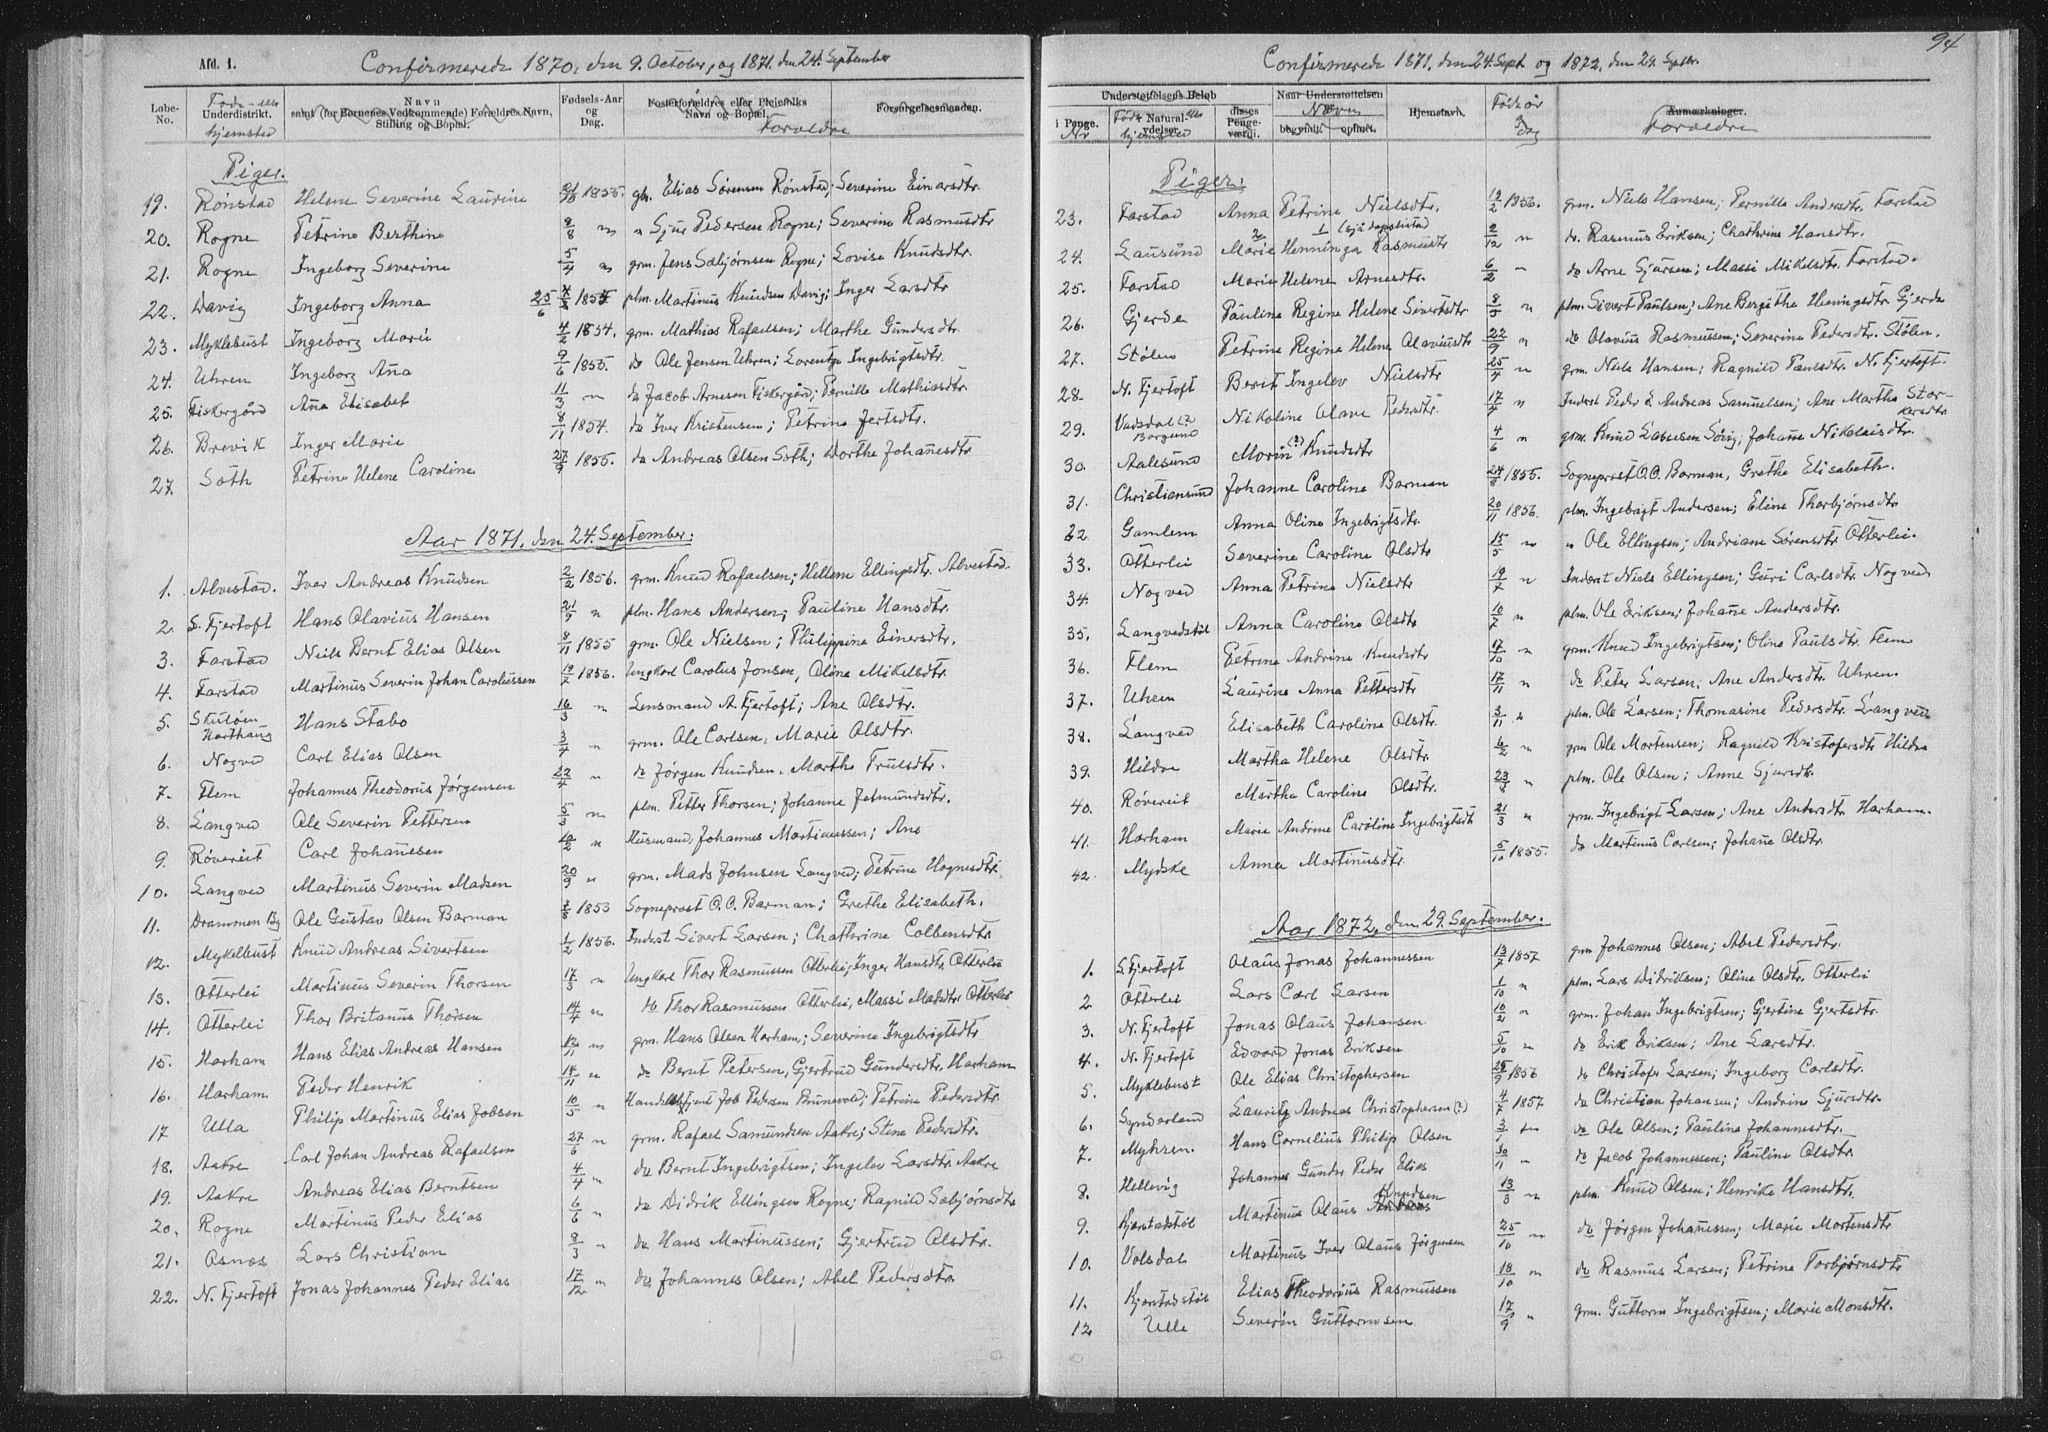 Afd. 1.
Confirmerede 1870, den 9. October, og 1871. den 24. September
Løbe-No.
Føde- Underdistrikt. hjemsted
Navn samt (for Børnenes Vedkommende) Forældres Navn, Stilling og Bopæl.
Fødsels-Aar og Dag.
Fosterforældres eller Pleiefolks Navn og Bopæl.
Forsørgelsesmaaden.
Forældre
Piger.
19. Rønstad Helene Severine Laurine 1855. Elias Sørensen Rønstad; Severine Einarsdtr.
20. Rogne Petrine Berthine 8/8 " " Sjur Pedersen Rogne; Severine Rasmusdtr
21. Rogne Ingeborg Severine 5/4 " grm. Jens Sæbjørnsen Rogne; Lovise Knudsdtr.
22. Davig Ingeborg Anna 25/6 1855 plm. Martinus Knudsen Davig; Inger Larsdtr
23. Myklebust Ingeborg Marie 4/2 1854. grm. Mathias Rafaelsen; Marthe Gundersdtr.
24. Uhren Ingeborg Aña 9/6 1855. do Ole Jensen Uhren; Lorentze Ingebrigtsdtr.
25. Fiskergård Aña Elisabet 11/3 " do Jacob Arnesen Fiskergård; Pernille Mathiasdtr.
26. Brevik Inger Marie 8/11 1854. do Iver Kristensen; Petrine Jertsdtr.
27. Søth Petrine Helene Caroline 27/9 1855. do Andreas Olsen Søth; Dorthe Johañesdtr
Aar 1871. den 24. September:
1. Alvestad. Iver Andreas Knudsen 2/2 1856. grm. Knud Rafaelsen; Hellene Ellingsdtr. Alvestad.
2. S. Fjertoft Hans Olavius Hansen 21/9 " plm. Hans Andersen; Pauline Hansdtr.
3. Farstad Niels Bernt Elias Olsen 8/11 1855 grm. Ole Nielsen; Philippine Einersdtr.
4. Farstad Martinus Severin Johan Carolussen 19/7 1856. Ungkarl Carolus Jonsen, Oline Mikelsdtr.
5. Skuløen Hans Stabo 16/3 " Lensmand A. Fjertoft; Ane Olsdtr.
6. Nogved Carl Elias Olsen 3/4 " grm. Ole Carlsen, Marie Olsdtr.
7. Flem Johannes Theodorus Jörgensen 22/4 " do Jörgen Knudsen. Marthe Trulsdtr.
8. Langved Ole Severin Pettersen 5/3 " plm. Petter Thorsen; Johanne Jetmundsdtr.
9. Røvereit Carl Johañesen 10/2 " Husmand, Johannes Martinussen; Ane
10. Langved Martinus Severin Madsen 20/9 " grm. Mads Johnsen Langved; Petrine Hognesdtr.
11. Drammen By Ole Gustav Olsen Barman 1853 Sogneprost O. C. Barman; Grethe Elisabeth.
12. Mykelbust Knud Andreas Sivertsen 1/2 1856. Inderst Sivert Larsen; Chathrine Colbensdtr
13. Otterlei Martinus Severin Thorsen 17/3 " Ungkarl Thor Rasmussen Otterlei; Inger Hansdtr. Otterlei
14. Otterlei Thor Britanus Thorsen 14/4 " do Thor Rasmussen Otterlei, Massi Madsdtr Otterlei
15. Harham Hans Elias Andreas Hansen 12/11 " grm. Hans Olsen Harham; Severine Ingebrigtsdtr
16. Harham Peder Henrik 14/11 " do Bernt Petersen, Gjertrud Gundersdtr. Harham
17 Ulla Philip Martinus Elias Jobsen 10/5 " Job Pedersen Brunevold; Petrine Pedersdtr.
18. Aakre Carl Johan Andreas Rafaelsen 27/6 " grm. Rafael Samundsen Aakre; Stene Pedersdtr.
19. Aakre Andreas Elias Berntsen 4/4 " do Bernt Ingebrigtsen; Ingelev Larsdtr. Aakre
20. Rogne Martinus Peder Elias 6/6 " do Didrik Ellingsen Rogne; Ragnild Sæbjørnsdtr
21. Asnæs Lars Christian 8/3 " do Hans Martinussen; Gjertrud Olsdtr.
22. N. Fjertoft Jonas Johannes Peder Elias 17/12 " do Johannes Olsen; Abel Pedersdtr.
94
Confirmerede 1871. den 24. Sept. og 1872. den 29. Septbr.
Understøttelsens Beløb
i Penge. Nr
Natural-ydelser. hjemsted
disses Penge-værdi.
Naar Understøttelsen
Navn
begyndt. ophørt.
Hjemstavn.
Föds. år og dag
Anmærkninger.
Forældre
Piger:
23. Farstad Anna Petrine Nielsdtr. 19/2 1856. grm. Niels Hansen; Pernille Andersdtr. Farstad
24. Lausund Marie Henninga Rasmusdtr 2/12 " do. Rasmus Eriksen; Chathrine Hansdtr.
25. Farstad Marie Helene Arnesdtr. 6/2 " do Arne Sjursen; Massi Mikelsdtr. Farstad.
26. Gjerde Pauline Regine Helene Sivertsdtr. 8/5 " plm. Sivert Paulsen; Ane Bergithe Heningsdtr. Gjerde
27. Stølen Petrine Regine Helene Olaviusdtr 22/9 " do Olavius Rasmussen; Severine Pedersdtr. Stølen.
28. N. Fjertoft Berit Ingelev Nielsdtr 25/4 " grm. Niels Hansen; Ragnild Paulsdtr. N. Fjertoft.
29. Vadsdal i Borgund Nikoline Olave Pedersdtr. 17/4 " Inderst Peder & Andreas Samuelsen; Ane Martha Stor-
keredtr
30. Aalesund Morin(?) Knudsdtr 4/6 " grm. Knud Lassesen Søvig, Johañe Nikolaisdtr.
31. Christiansund Johanne Caroline Barman 24/8 1855. Sogneprost O. C. Barman, Grethe Elisabeth.
32 Gamlem Anna Oline Ingebrigtsdtr. 20/11 1856. plm. Ingebrigt Andersen; Eline Thorbjørnsdtr
33. Otterlei Severine Caroline Olsdtr 15/5 " " Ole Ellingsen; Andriane Sörensdtr Otterlei.
34. Nogved Anna Petrine Nielsdtr 19/7 " Inderst Niels Ellingsen; Guri Carlsdtr. Nogved
35. Langvedstøl Anna Caroline Olsdtr 10/7 " plm. Ole Eriksen; Johañe Andersdtr.
36. Flem Petrine Andrine Knudsdtr 17/10 " grm. Knud Ingebrigtsen; Oline Paulsdtr. Flem
37. Uhren Laurine Anna Pettersdtr 17/11 " do Peter Larsen, Ane Andersdtr. Uhren.
38. Langved Elisabeth Caroline Olsdtr. 3/11 " plm. Ole Larsen; Thomasine Pedersdtr. Langved
39. Hildre Martha Helene Olsdtr. 6/2 " grm Ole Mortensen; Ragnild Kristofersdtr Hildre
40. Røvereit Martha Caroline Olsdtr. 23/3 " plm. Ole Olsen; Anne Sjursdtr.
41. Harham Marie Andrine Caroline Ingebrigtsdt 21/3 " grm. Ingebrigt Larsen; Ane Andersdtr Harham.
42. Mydske Anna Martinusdtr. 5/10 1855. do Martinus Carlsen; Johañe Olsdtr.
Aar 1872. den 29. September.
1. S. Fjertoft Olaus Jonas Johannessen 13/7 1857 grm Johannes Olsen; Abel Pedersdtr.
2 Otterlei Lars Carl Larsen 1/10 " plm. Lars Didriksen; Oline Olsdtr. Otterlei
3. N. Fjertoft Jonas Olaus Johansen 10/2 " grm. Johan Ingebrigtsen; Gjertine Gjertsdtr.
4. N. Fjertoft Edvard Jonas Eriksen 5/10 " do Erik Eriksen; Ane Larsdtr.
5. Myklebust Ole Elias Christophersen 25/9 1856 do Christofer Larsen; Ingeborg Carlsdtr.
6. Synderland Lauritz Andreas Christophersen (?) 4/7 1857 do Christian Johansen; Andrine Sjursdtr.
7. Myhren Hans Cornelius Philip Olsen 3/1 " do Ole Olsen; Pauline Johannesdtr.
8. Hellevig Johannes Gunder Peder Elias 30/11 " do Jacob Johannessen; Pauline Olsdtr.
9. Kjerstadstøl Martinus Olaus Knudsen 13/3 " plm. Knud Olsen; Henrike Hansdtr.
10. Volsdal Martinus Iver Olaus Jørgensen 25/10 " do Jörgen Johañessen; Marie Mortensdtr
11. Kjerstadstøl Elias Theodorius Rasmussen 18/10 " do Rasmus Larsen; Petrine Torbjørnsdtr
12 Ulle Severin Guttormsen 17/9 " grm. Guttorm Ingebrigtsen; Marie Monsdtr.